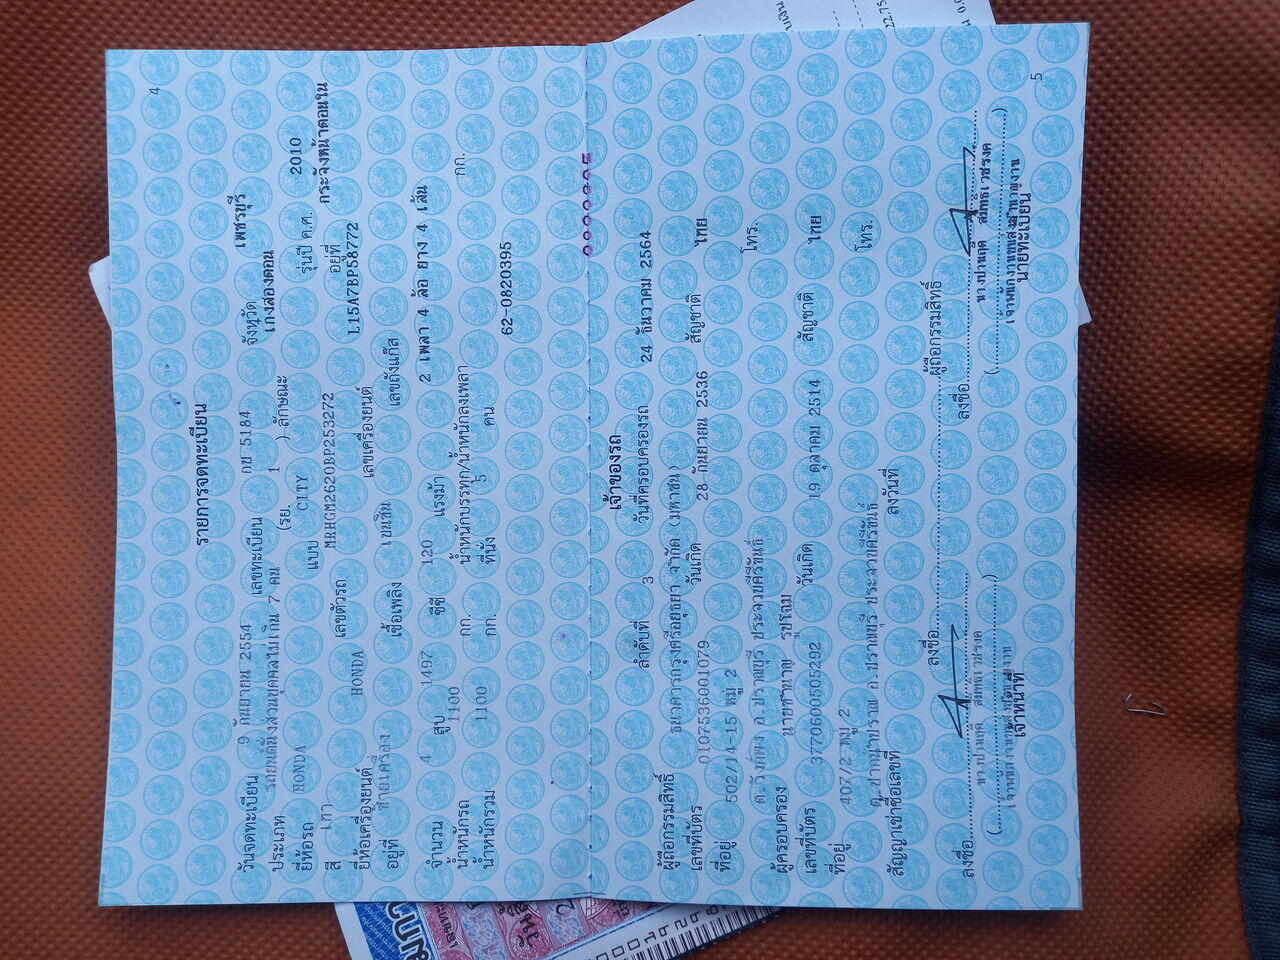 4
รายการจดทะเบียน
วันจดทะเบียน 9 กันยายน 2554 เลขทะเบียน กข 5184 จังหวัด เพชรบุรี
ประเภท รถยนต์นั่งส่วนบุคคลไม่เกิน 7 คน (รย. 1 ) ลักษณะ เก๋งสองตอน
ยี่ห้อรถ HONDA แบบ CITY รุ่นปี ค.ศ. 2010
สี เทา เลขตัวรถ MRHGM2620BP253272 อยู่ที่ กระจังหน้าตอนใน
ยี่ห้อเครื่องยนต์ HONDA เลขเครื่องยนต์ L15A7BP58772
อยู่ที่ ซ้ายเครื่อง เชื้อเพลิง เบนซิน เลขถังแก๊ส
จำนวน 4 สูบ 1497 ซีซี 120 แรงม้า 2 เพลา 4 ล้อ ยาง 4 เส้น
น้ำหนักรถ 1100 กก. น้ำหนักบรรทุก/น้ำหนักลงเพลา กก.
น้ำหนักรวม 1100 กก. ที่นั่ง 5 คน
62-0820395
เจ้าของรถ
ลำดับที่ 3 วันที่ครอบครองรถ 24 ธันวาคม 2564
ผู้ถือกรรมสิทธิ์ ธนาคารกรุงศรีอยุธยา จำกัด (มหาชน)
เลขที่บัตร 0107536001079 วันเกิด 28 กันยายน 2536 สัญชาติ ไทย
ที่อยู่ 502/14-15 หมู่ 2
ต.วังก์พง อ.ปราณบุรี ประจวบคีรีขันธ์ โทร.
ผู้ครอบครอง นายชำนาญ รูปโฉม
เลขที่บัตร 3770600505292 วันเกิด 19 ตุลาคม 2514 สัญชาติ ไทย
ที่อยู่ 407/2 หมู่ 2
ต.ปากน้ำปราณ อ.ปราณบุรี ประจวบคีรีขันธ์ โทร.
สัญญาเช่าซื้อเลขที่ ลงวันที่
ลงชื่อ ผู้ถือกรรมสิทธิ์
ลงชื่อ ลงชื่อ
เจ้าหน้าที่ นายทะเบียน
5